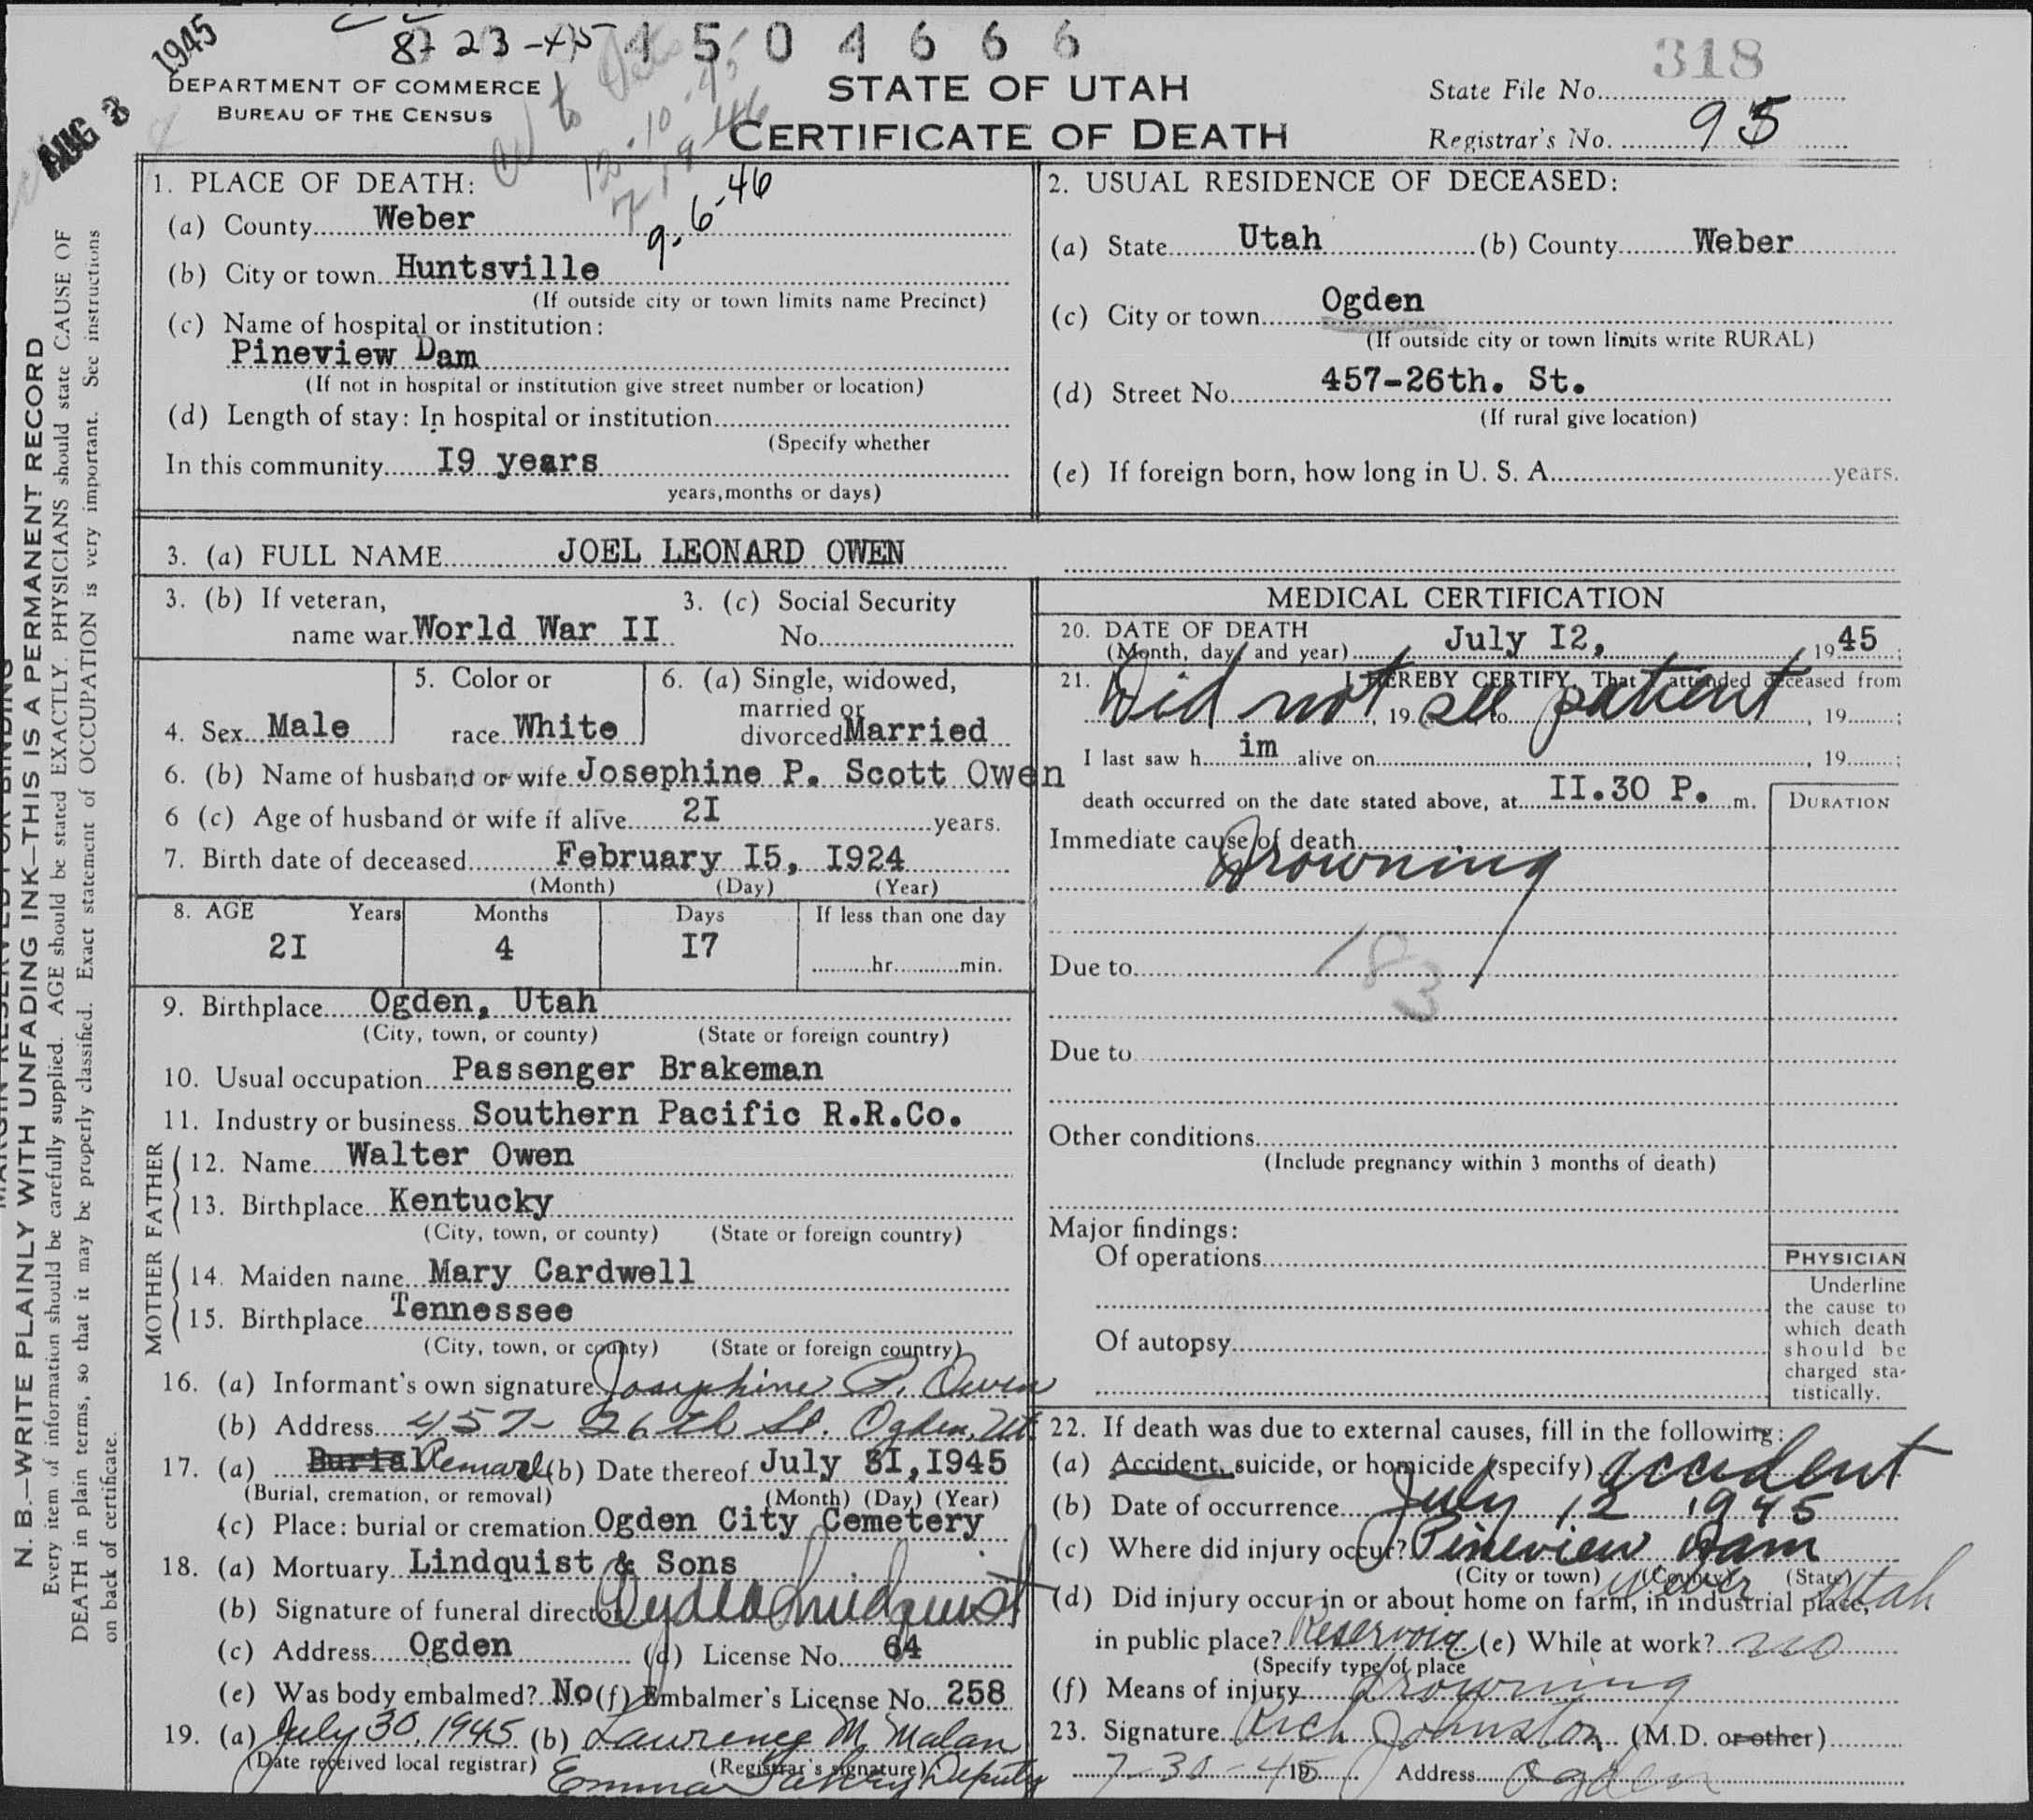 1945
8-23-45 1504666
318
AUG 3
DEPARTMENT OF COMMERCE
BUREAU OF THE CENSUS
STATE OF UTAH
CERTIFICATE OF DEATH
State File No.
Registrar's No. 95
N. B.—WRITE PLAINLY WITH UNFADING INK—THIS IS A PERMANENT RECORD
Every item of information should be carefully supplied. AGE should be stated EXACTLY. PHYSICIANS should state CAUSE OF
DEATH in plain terms, so that it may be properly classified. Exact statement of OCCUPATION is very important. See instructions
on back of certificate.
1. PLACE OF DEATH:
9-6-46
(a) County Weber
(b) City or town Huntsville
(If outside city or town limits name Precinct)
(c) Name of hospital or institution:
Pineview Dam
(If not in hospital or institution give street number or location)
(d) Length of stay: In hospital or institution
(Specify whether
In this community I9 years
years, months or days)
2. USUAL RESIDENCE OF DECEASED:
(a) State Utah (b) County Weber
(c) City or town Ogden
(If outside city or town limits write RURAL)
(d) Street No. 457-26th. St.
(If rural give location)
(e) If foreign born, how long in U. S. A. years.
3. (a) FULL NAME JOEL LEONARD OWEN
3. (b) If veteran,
name war World War II
3. (c) Social Security
No.
4. Sex Male
5. Color or
race White
6. (a) Single, widowed,
married or
divorced Married
6. (b) Name of husband or wife Josephine P. Scott Owen
6 (c) Age of husband or wife if alive 2I years.
7. Birth date of deceased February I5, I924
(Month) (Day) (Year)
8. AGE Years Months Days If less than one day
2I 4 I7 hr. min.
9. Birthplace Ogden, Utah
(City, town, or county) (State or foreign country)
10. Usual occupation Passenger Brakeman
11. Industry or business Southern Pacific R.R.Co.
FATHER
12. Name Walter Owen
13. Birthplace Kentucky
(City, town, or county) (State or foreign country)
MOTHER
14. Maiden name Mary Cardwell
15. Birthplace Tennessee
(City, town, or county) (State or foreign country)
16. (a) Informant's own signature Josephine P. Owen
(b) Address 457-26th St. Ogden, Ut.
17. (a) Burial (b) Date thereof July 3I, I945
(Burial, cremation, or removal) (Month) (Day) (Year)
(c) Place: burial or cremation Ogden City Cemetery
18. (a) Mortuary Lindquist & Sons
(b) Signature of funeral director Lindquist
(c) Address Ogden (d) License No. 64
(e) Was body embalmed? No (f) Embalmer's License No. 258
19. (a) July 30, 1945 (b) Lawrence M Malan
(Date received local registrar) (Registrar's signature)
Emma Deputy
MEDICAL CERTIFICATION
20. DATE OF DEATH
(Month, day and year) July I2, 1945;
21. I HEREBY CERTIFY, That I attended deceased from
Did not see patient
, 19 to , 19 ;
I last saw h im alive on , 19 ;
death occurred on the date stated above, at II.30 P. m.
DURATION
Immediate cause of death
Drowning
183
Due to
Due to
Other conditions
(Include pregnancy within 3 months of death)
Major findings:
Of operations
Of autopsy
PHYSICIAN
Underline
the cause to
which death
should be
charged sta-
tistically.
22. If death was due to external causes, fill in the following:
(a) Accident, suicide, or homicide (specify) accident
(b) Date of occurrence July 12 1945
(c) Where did injury occur? Pineview Dam
(City or town) (County) (State)
Weber Utah
(d) Did injury occur in or about home on farm, in industrial place,
in public place? Reservoir (e) While at work? no
(Specify type of place
(f) Means of injury drowning
23. Signature Rich Johnston (M.D. or other)
7-30-45 19 Address Ogden